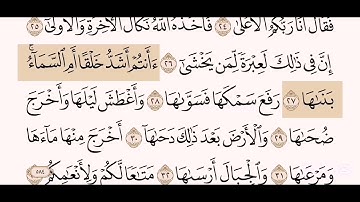 فَقَالَ أَنَا۠ رَبُّكُمُ ٱلْأَعْلَىٰ ٢٤ فَأَخَذَهُ ٱللَّهُ نَكَالَ ٱلْءَاخِرَةِ وَٱلْأُولَىٰٓ ٢٥
إِنَّ فِى ذَٰلِكَ لَعِبْرَةً لِّمَن يَخْشَىٰٓ ٢٦ ءَأَنتُمْ أَشَدُّ خَلْقًا أَمِ ٱلسَّمَآءُ ۚ
بَنَىٰهَا ٢٧ رَفَعَ سَمْكَهَا فَسَوَّىٰهَا ٢٨ وَأَغْطَشَ لَيْلَهَا وَأَخْرَجَ
ضُحَىٰهَا ٢٩ وَٱلْأَرْضَ بَعْدَ ذَٰلِكَ دَحَىٰهَآ ٣٠ أَخْرَجَ مِنْهَا مَآءَهَا
وَمَرْعَىٰهَا ٣١ وَٱلْجِبَالَ أَرْسَىٰهَا ٣٢ مَتَٰعًا لَّكُمْ وَلِأَنْعَٰمِكُمْ
٥٨٤